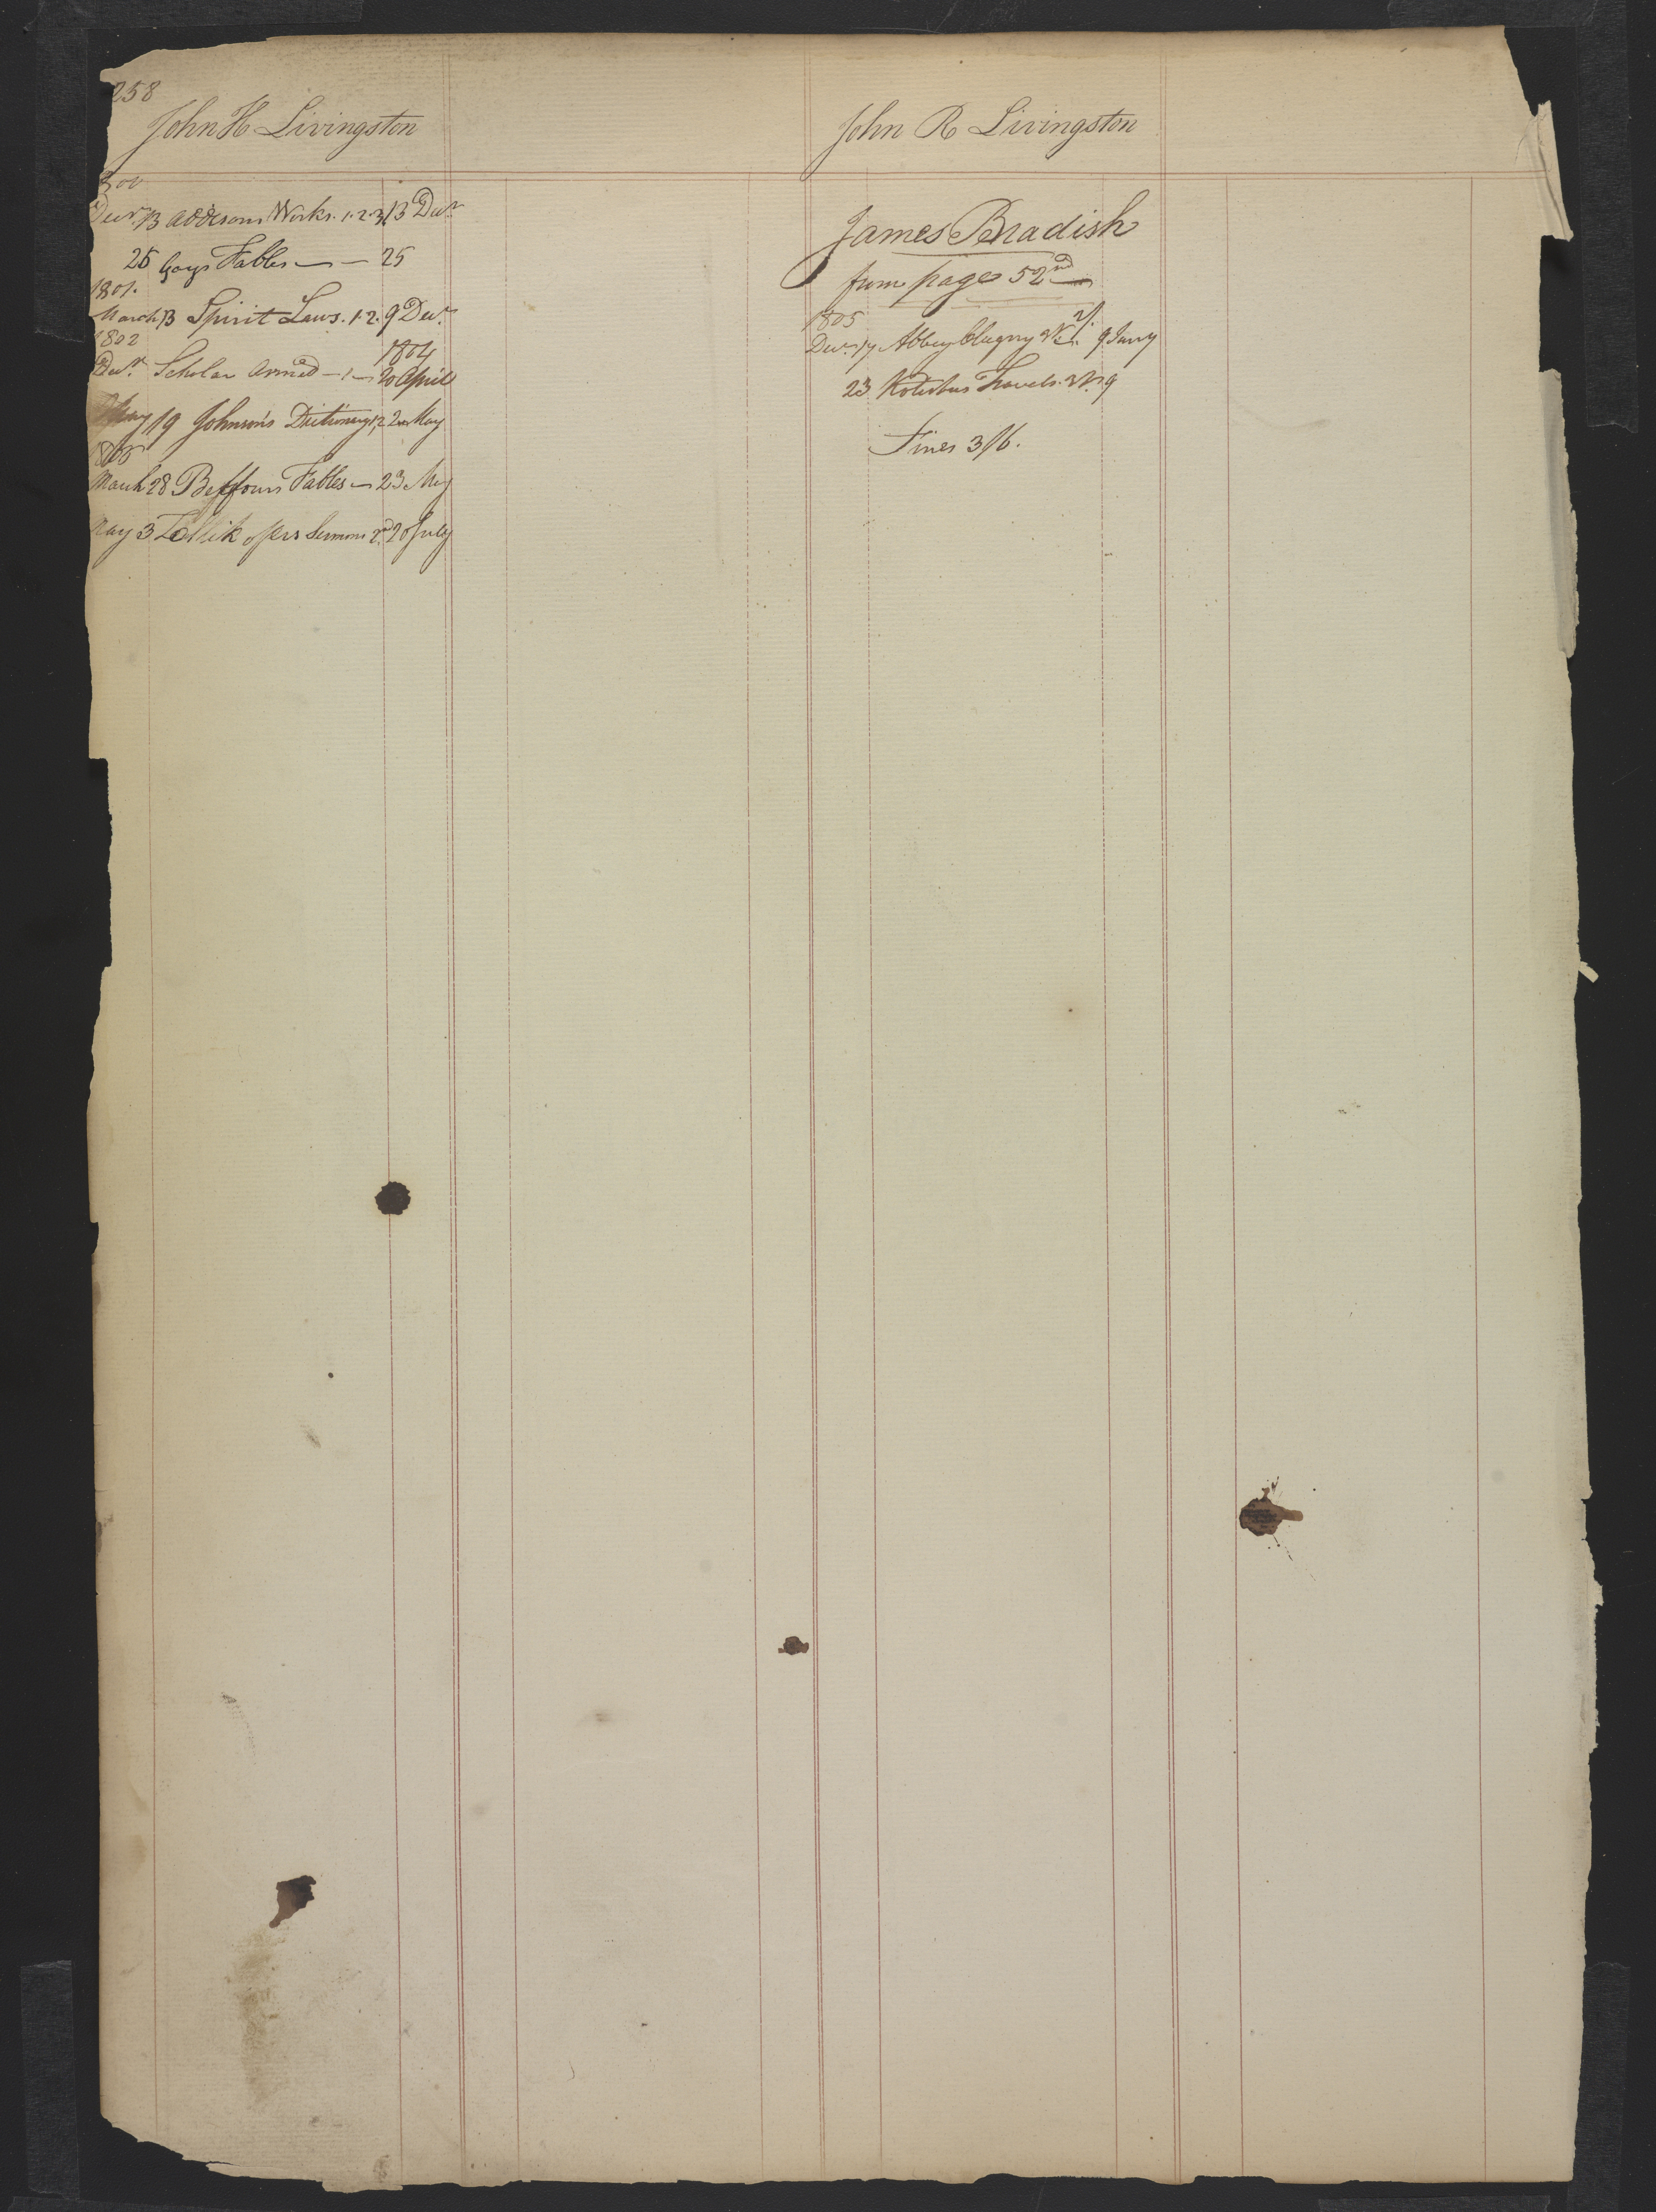 258
John H Livingston
Decr. 13 Addisons Works. 1.2.3 13 Decr
25 Gays Fables — — 25
1801.
March 13 Spirit Laws. 1.2. 9 Decr.
1802
1804
Decr. Scholar Armed — 1 — 20 April
May 19 Johnson's Dictionary 1,2 May
1805
March 28 Fables — 23 May
May 3 Sermons 2d 20 July
John R Livingston
James Bradish
from page 52nd —
1805
2/.
Decr. 17 Abbey Clugny 9 Jany
23 Travels. 9
Fines 3/6.